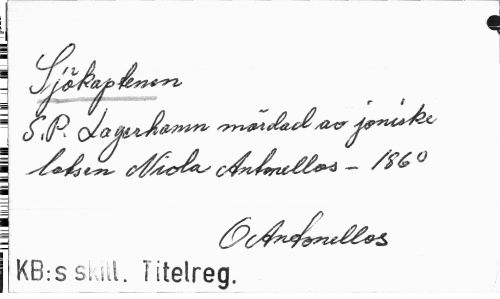 Sjökaptenen
S.P. Lagerhamn mördad av joniske
lotsen Niola Antonellos - 1860
O Antonellos
KB:s skill. Titelreg.